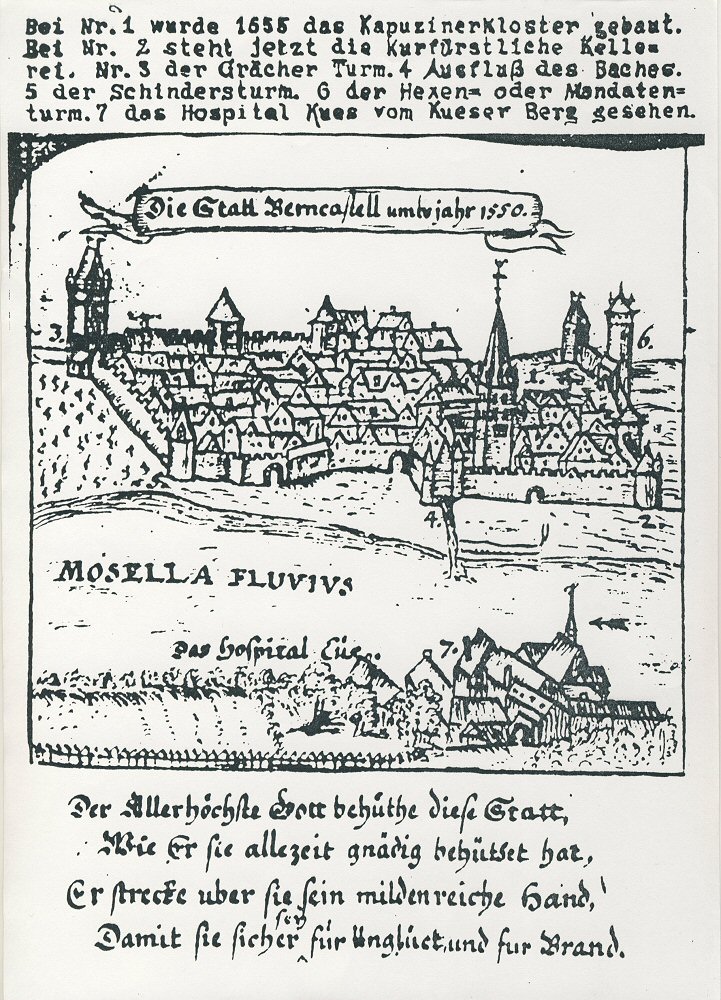 Bei Nr. 1 wurde 1655 das Kapuzinerkloster gebaut.
Bei Nr. 2 steht jetzt die Kurfürstliche Kelle=
rei. Nr. 3 der Grächer Turm. 4 Ausfluß des Baches.
5 der Schindersturm. 6 der Hexen= oder Mandaten=
turm. 7 das Hospital Kues vom Kueser Berg gesehen.
Die Statt Berncastell umbs jahr 1550.
3.
6.
1.
4.
2.
MOSELLA FLUVIVS
Das Hospital Cüs.
7.
Der Allerhöchste Gott behüthe diese Statt,
Wie Er sie allezeit gnädig behüttet hat,
Er strecke uber sie sein mildenreiche Hand,
Damit sie sicher sey für Unglück, und fur Brand.